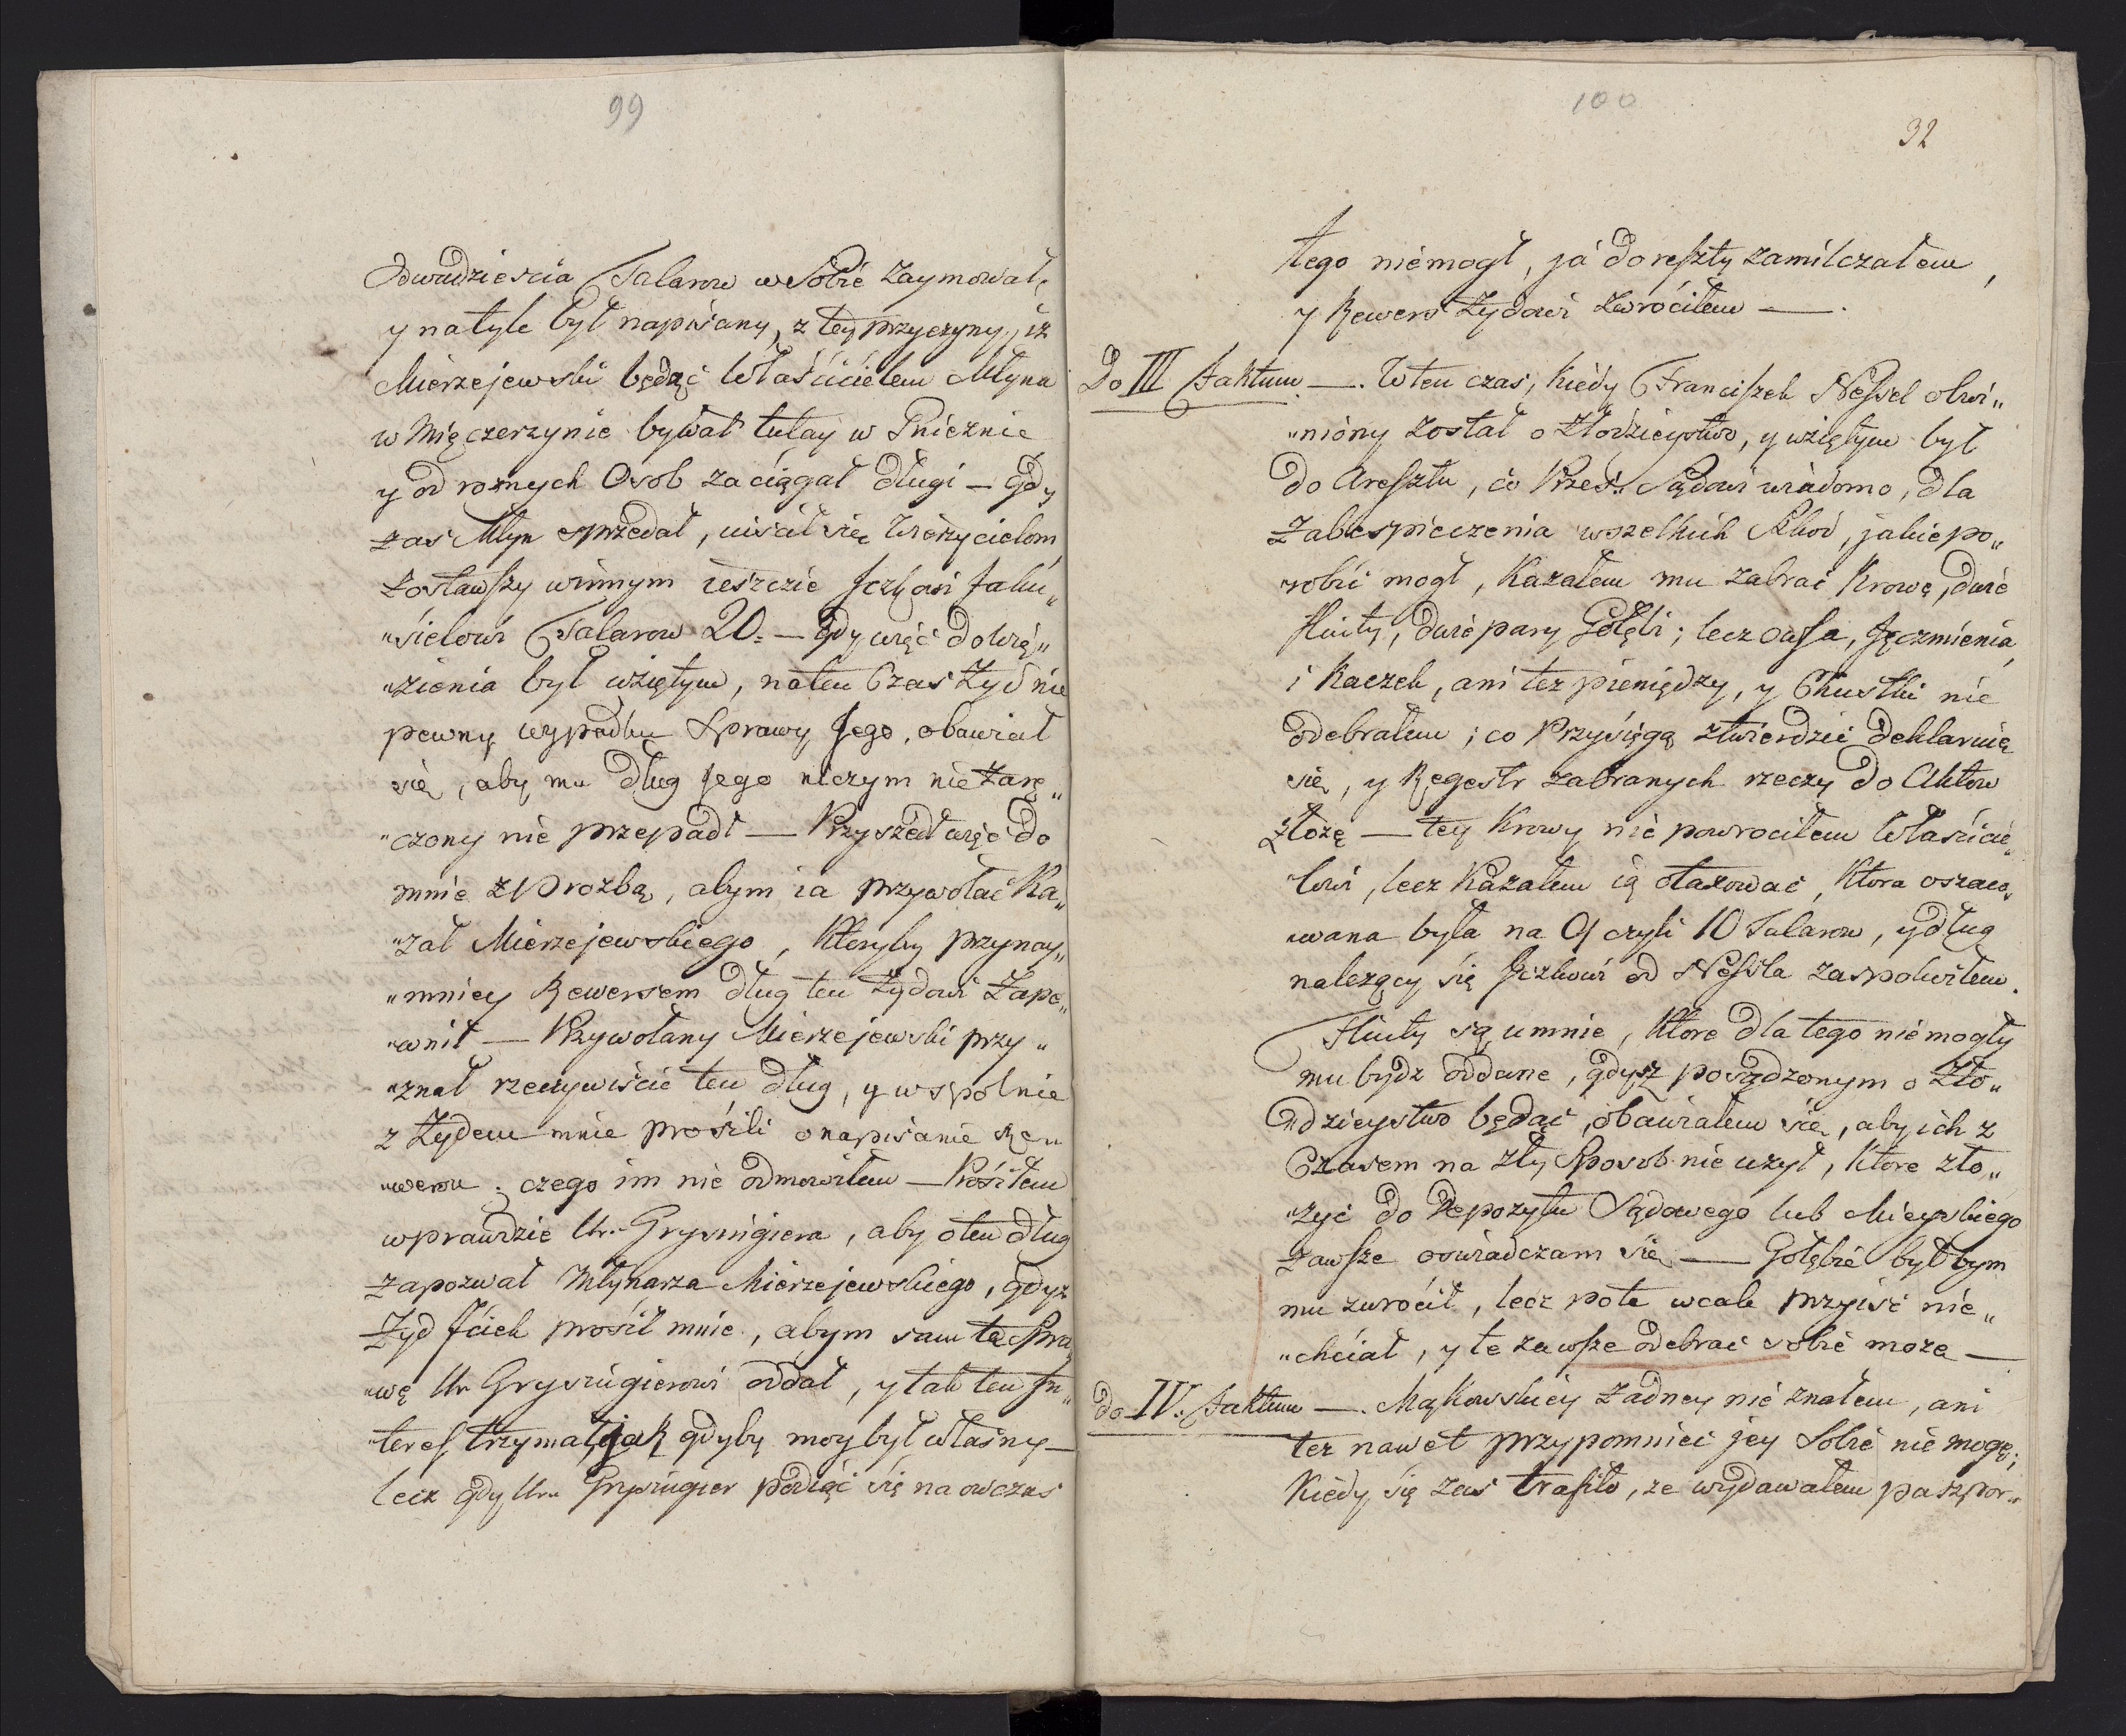 99
Dwadziescia Talarow w Sobie zaymował,
y na tyle był napisany, z tey przyczyny, iż
Mierzejewski będąc Właścicielem Młyna
w Mięczerzynie bywał tutay w Gnieznie
y od roznych Osob zaciągał długi — gdy
zas Młyn sprzedał, uiścił się Wierzycielom
zostawszy winnym ieszcze Jczkowi Jaku„
„sielowi Talarow 20. — gdy więc do wię„
„zienia był wziętym, na ten Czas Żyd nie
pewny wypadku Sprawy Jego, obawiał
się, aby mu dług Jego niczym nie Zarę„
„czony nie przepadł — Przyszedł więc do
mnie z Prozbą, abym ia przywołać Ka„
„zał Mierzejewskiego, któryby przynay„
„mniey Rewersem dług ten Żydowi Zape„
„wnił — Przywołany Mierzejewski przy„
„znał rzeczywiście ten dług, y wspolnie
z Żydem mnie prośili o napisanie Re„
„wersu; czego im nie odmowiłem — Prośiłem
wprawdzie Ur. Grysingiera, aby o ten dług
zapozwał Młynarza Mierzejewskiego, gdyz
Żyd Jciek prośił mnie, abym sam tę Spra„
„wę Ur Grysingierowi oddał, y tak ten In„
„teres trzymał, jak gdyby moy był własny —
lecz gdy Ur. Grysingier podiąć się na owczas
100
32
tego niemogł, ja do reszty zamilczałem,
y Rewers Żydowi zwróciłem —.
Do III Faktum —. W ten czas, kiedy Franciszek Nessel obwi„
„niony został o złodzieystwo, y wziętym był
do Aresztu, co Prześ: Sądowi wiadomo, dla
zabespieczenia wszelkich Szkod, jakie po„
robić mogł, kazałem mu zabrać krowę, dwie
flinty, dwie pary Gołębi; lecz owsa, Jęczmienia,
i kaczek, ani tez pieniędzy, y Chustki nie
odebrałem; co Przysięgą ztwierdzić deklaruię
się, y Regestr zabranych rzeczy do Aktow
złożę — tey krowy nie powrociłem Właścicie„
lowi, lecz kazałem ią otaxować, ktora oszaco„
„wana była na 9 czyli 10 Talarow, y dług
nalezący się Jczkowi od Nessla zaspokoiłem.
Flinty są u mnie, ktore dla tego nie mogły
mu bydz oddane, gdysz posądzonym o zło„
„dzieystwo będąć, obawiałem się, aby ich z
Czasem na zły Sposob nie uzył, ktore zło„
„zyć do Depozytu Sądowego lub Mieyskiego
zawsze oswiadczam się — Gołębie byłbym
mu zwrócił, lecz po te wcale przyisć nie„
„chciał, y te zawsze odebrać sobie moze —
do IV. Faktum —. Mąkowskiey żadney nie znałem, ani
tez nawet przypomniec jey Sobie nie mogę;
kiedy się zas trafiło, ze wydawałem paszpor„